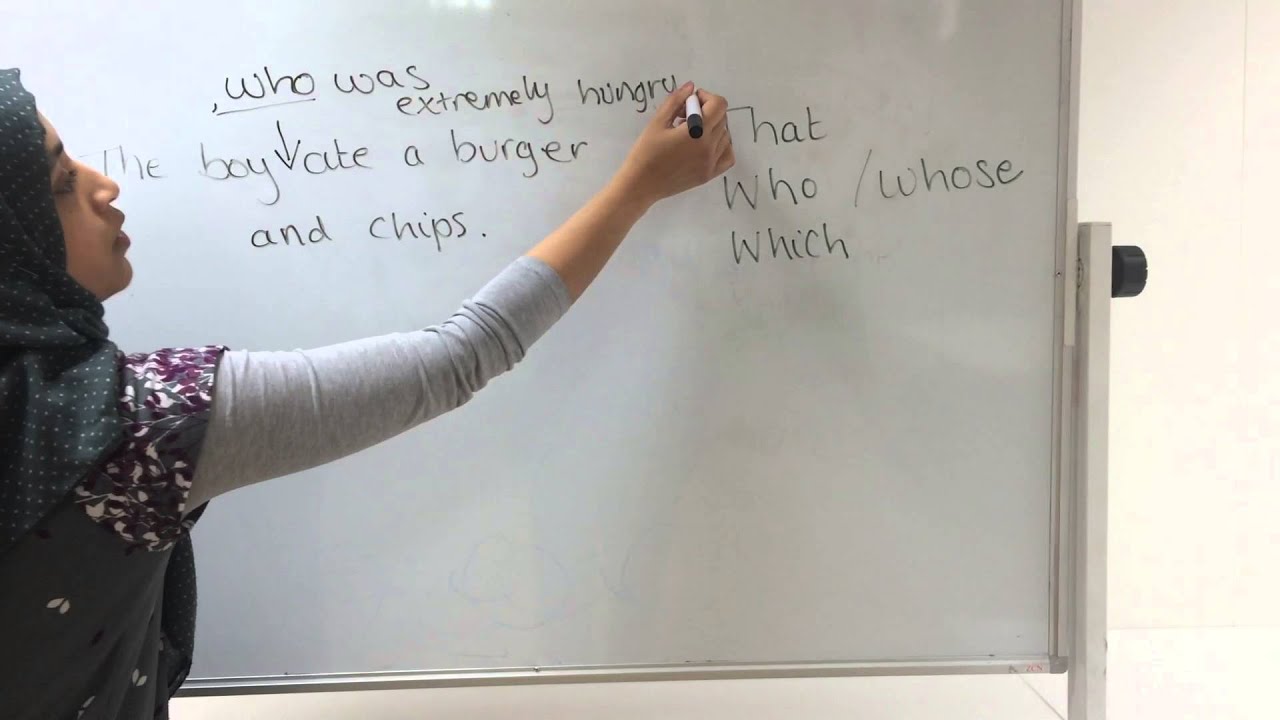 , who was
extremely hungry
The boy ate a burger
and chips.
That
Who / whose
Which